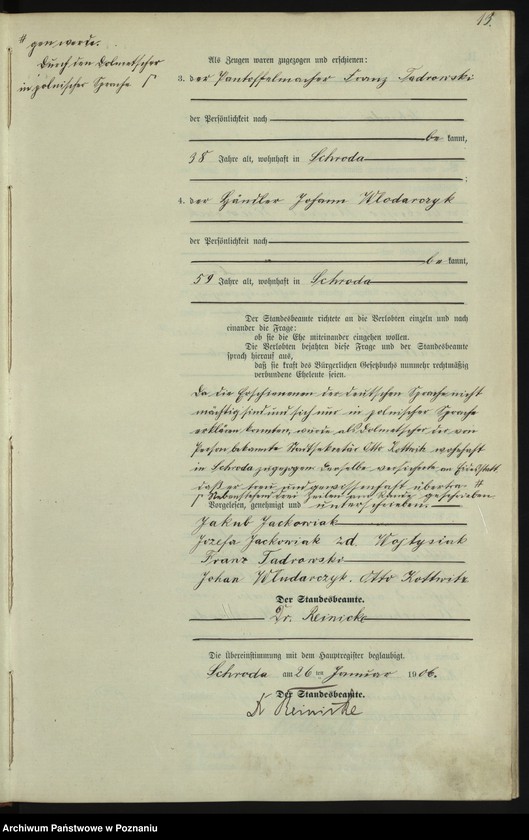 15.
# gen werde.
Durch den Dolmetscher
in polnischer Sprache
Als Zeugen waren zugezogen und erschienen:
3. der Pantoffelmacher Franz Tadrowski
der Persönlichkeit nach
be kannt,
38 Jahre alt, wohnhaft in Schroda
;
4. der Händler Johann Wlodarczyk
der Persönlichkeit nach
be kannt,
59 Jahre alt, wohnhaft in Schroda
Der Standesbeamte richtete an die Verlobten einzeln und nach
einander die Frage:
ob sie die Ehe miteinander eingehen wollen.
Die Verlobten bejahten diese Frage und der Standesbeamte
sprach hierauf aus,
daß sie kraft des Bürgerlichen Gesetzbuchs nunmehr rechtmäßig
verbundene Eheleute seien.
Da die Erschienenen der deutschen Sprache nicht
mächtig sind und sich nur in polnischer Sprache
erklären konnten, wurde als Dolmetscher der von
Person bekannte Stadtsekretär Otto Kottwitz wohnhaft
in Schroda zugezogen. Derselbe versicherte an Eidesstatt
daß er treu und gewissenhaft übertra #
Nebenstehend drei Zeilen am Rande geschrieben
Vorgelesen, genehmigt und unterschrieben.
Jakub Jackowiak
Jozefa Jackowiak zd. Wojtysiak
Franz Tadrowski
Johan Wludarczyk. Otto Kottwitz
Der Standesbeamte.
Dr. Reinicke
Die Übereinstimmung mit dem Hauptregister beglaubigt.
Schroda am 26 ten Januar 1906.
Der Standesbeamte.
Dr Reinicke
Archiwum Państwowe w Poznaniu